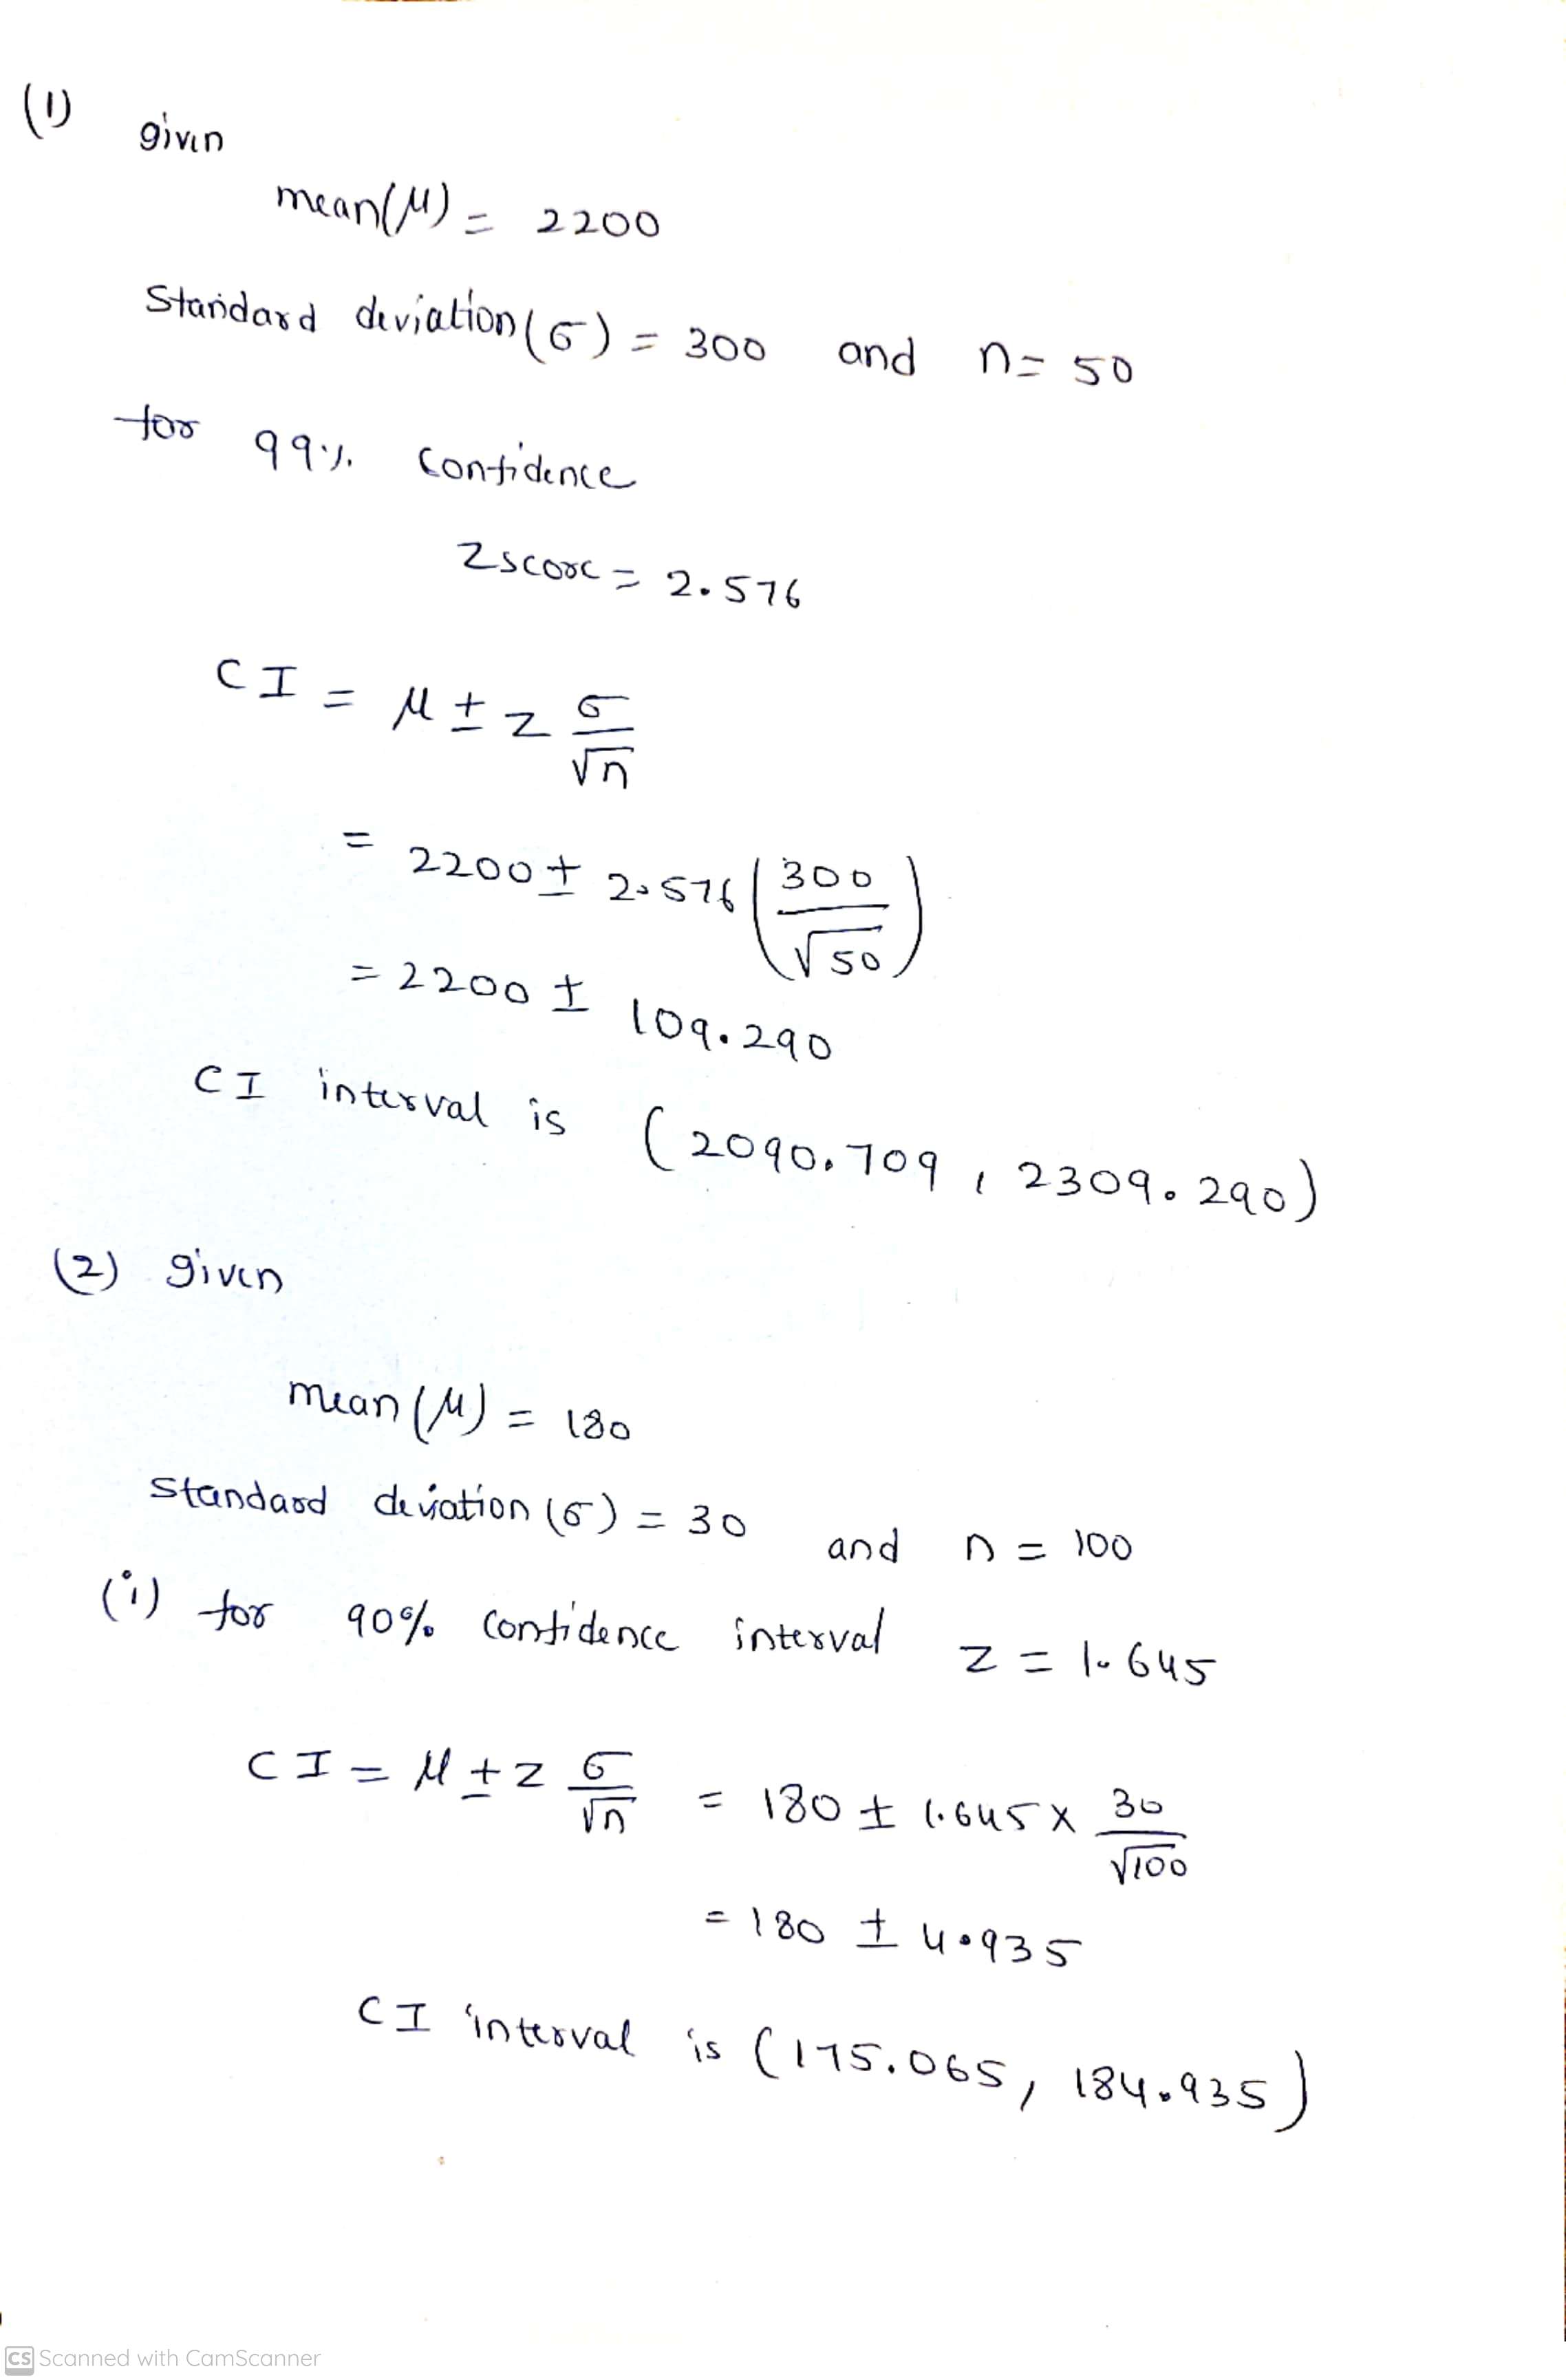 (1) given
mean(μ) = 2200
Standard deviation(σ) = 300 and n = 50
for 99% confidence
Zscore = 2.576
CI = μ ± z σ/√n
= 2200 ± 2.576 (300/√50)
= 2200 ± 109.290
CI interval is (2090.709, 2309.290)
(2) given
mean(μ) = 180
standard deviation (σ) = 30 and n = 100
(i) for 90% confidence interval z = 1.645
CI = μ ± z σ/√n = 180 ± 1.645 × 30/√100
= 180 ± 4.935
CI interval is (175.065, 184.935)
CS Scanned with CamScanner